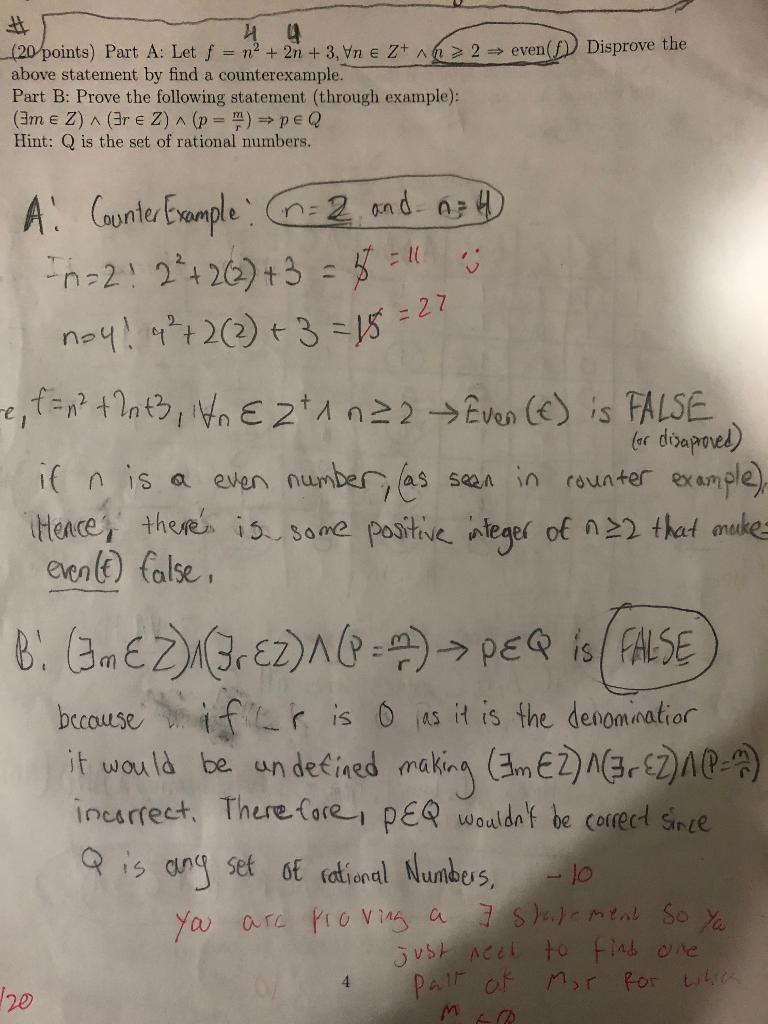 #
4 4
(20 points) Part A: Let f = n² + 2n + 3, ∀n ∈ Z⁺ ∧ n ⩾ 2 ⇒ even(f) Disprove the
above statement by find a counterexample.
Part B: Prove the following statement (through example):
(∃m ∈ Z) ∧ (∃r ∈ Z) ∧ (p = m/r) ⇒ p ∈ Q
Hint: Q is the set of rational numbers.
A: Counter Example: n=2 and n=4
n=2: 2²+2(2)+3 = 5 = 11 :)
n=4: 4²+2(2)+3 = 15 = 27
re, f=n²+2n+3, ∀n ∈ Z⁺ ∧ n≥2 → Even(f) is FALSE
(or disaproved)
if n is a even number, (as seen in counter example),
Hence, there is some positive integer of n≥2 that makes
even(f) false.
B: (∃m∈Z)∧(∃r∈Z)∧(P=m/r) → p∈Q is FALSE
because if r is 0 as it is the denominatior
it would be undefined making (∃m∈Z)∧(∃r∈Z)∧(P=m/r)
incorrect. Therefore, p∈Q wouldn't be correct since
Q is any set of rational Numbers. -10
You are proving a ∃ statement so yo
just need to find one
4 pair of m,r for which
/20 m ∈ Q